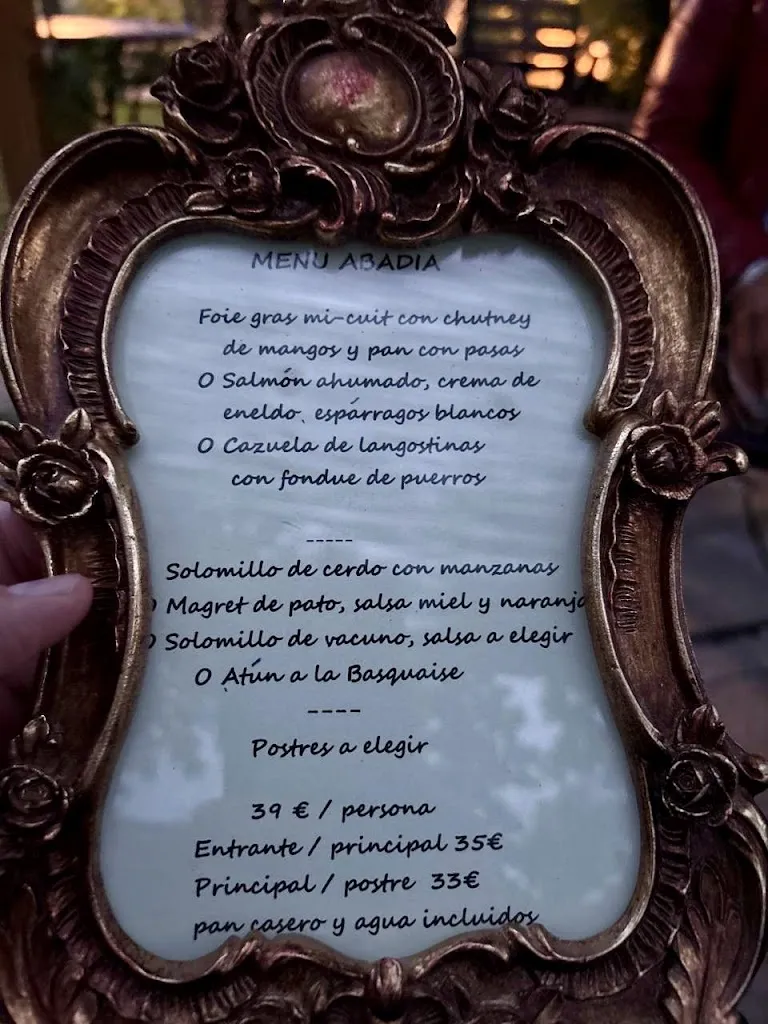 MENU ABADIA
Foie gras mi-cuit con chutney
de mangos y pan con pasas
O Salmón ahumado, crema de
eneldo, espárragos blancos
O Cazuela de langostinas
con fondue de puerros
-----
Solomillo de cerdo con manzanas
O Magret de pato, salsa miel y naranja
O Solomillo de vacuno, salsa a elegir
O Atún a la Basquaise
----
Postres a elegir
39 € / persona
Entrante / principal 35€
Principal / postre 33€
pan casero y agua incluidos